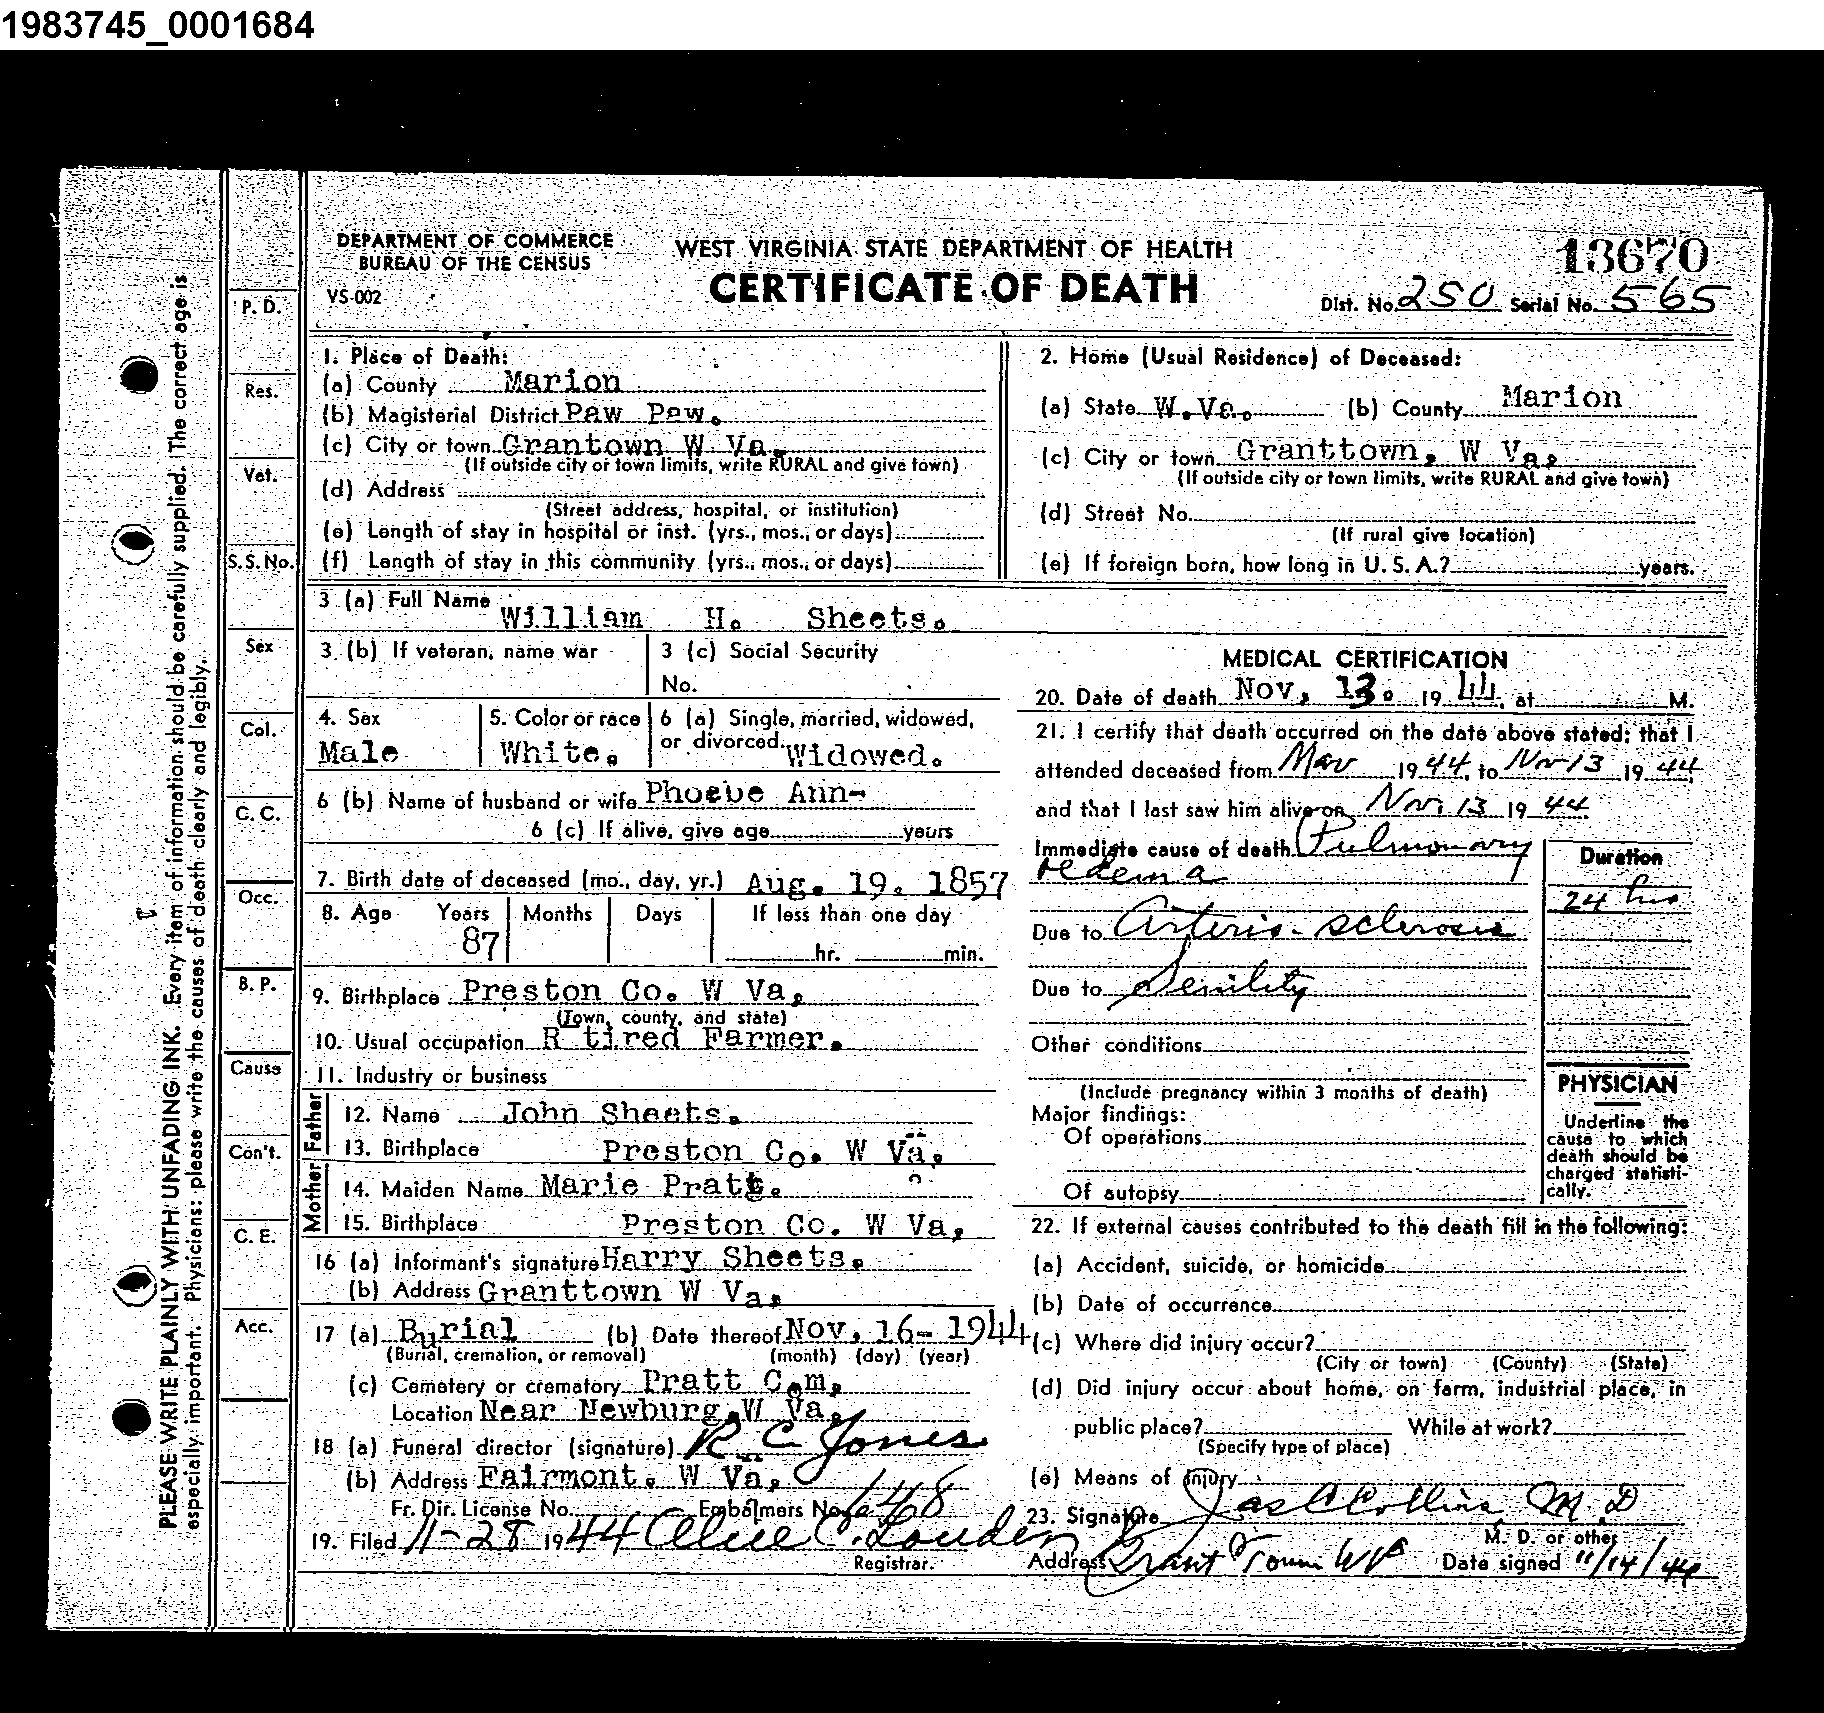 1983745_0001684
DEPARTMENT OF COMMERCE
BUREAU OF THE CENSUS
VS-002
WEST VIRGINIA STATE DEPARTMENT OF HEALTH
CERTIFICATE OF DEATH
13670
Dist. No. 250 Serial No. 565
PLEASE WRITE PLAINLY WITH UNFADING INK. Every item of information should be carefully supplied. The correct age is
especially important. Physicians: please write the causes of death clearly and legibly.
P. D.
Res.
Vet.
S. S. No.
Sex
Col.
C. C.
Occ.
B. P.
Cause
Con't.
C. E.
Acc.
1. Place of Death:
(a) County Marion
(b) Magisterial District Paw Paw.
(c) City or town Grantown W Va.
(If outside city or town limits, write RURAL and give town)
(d) Address
(Street address, hospital, or institution)
(e) Length of stay in hospital or inst. (yrs., mos., or days)
(f) Length of stay in this community (yrs., mos., or days)
2. Home (Usual Residence) of Deceased:
(a) State W.Va. (b) County Marion
(c) City or town Granttown, W Va,
(If outside city or town limits, write RURAL and give town)
(d) Street No.
(If rural give location)
(e) If foreign born, how long in U. S. A.? years.
3 (a) Full Name William H. Sheets.
3 (b) If veteran, name war
3 (c) Social Security
No.
4. Sex
Male
5. Color or race
White.
6 (a) Single, married, widowed,
or divorced. Widowed.
6 (b) Name of husband or wife Phoebe Ann-
6 (c) If alive, give age years
7. Birth date of deceased (mo., day, yr.) Aug. 19. 1857
8. Age Years Months Days If less than one day
87 hr. min.
9. Birthplace Preston Co. W Va,
(Town, county, and state)
10. Usual occupation R tired Farmer.
11. Industry or business
Father
12. Name John Sheets.
13. Birthplace Preston Co. W Va,
Mother
14. Maiden Name Marie Pratt.
15. Birthplace Preston Co. W Va,
16 (a) Informant's signature Harry Sheets.
(b) Address Granttown W Va,
17 (a) Burial (b) Date thereof Nov, 16- 1944
(Burial, cremation, or removal) (month) (day) (year)
(c) Cemetery or crematory Pratt Cem,
Location Near Newburg,W Va,
18 (a) Funeral director (signature) R C Jones
(b) Address Fairmont. W Va,
Fr. Dir. License No. Embalmers No. 6468
19. Filed 11-28 1944 C. Louden
Registrar.
MEDICAL CERTIFICATION
20. Date of death Nov, 13. 1944, at M.
21. I certify that death occurred on the date above stated; that I
attended deceased from Mar 1944, to Nov 13 1944
and that I last saw him alive on Nov 13 1944
Immediate cause of death Pulmonary
oedema
Duration
24 hrs
Due to Arterio-sclerosis
Due to Senility
Other conditions
(Include pregnancy within 3 months of death)
Major findings:
Of operations
Of autopsy
PHYSICIAN
Underline the
cause to which
death should be
charged statisti-
cally.
22. If external causes contributed to the death fill in the following:
(a) Accident, suicide, or homicide
(b) Date of occurrence
(c) Where did injury occur?
(City or town) (County) (State)
(d) Did injury occur about home, on farm, industrial place, in
public place? While at work?
(Specify type of place)
(e) Means of injury
23. Signature Jas C Collins, M. D
M. D. or other
Address Grant Town WVa Date signed 11/14/44